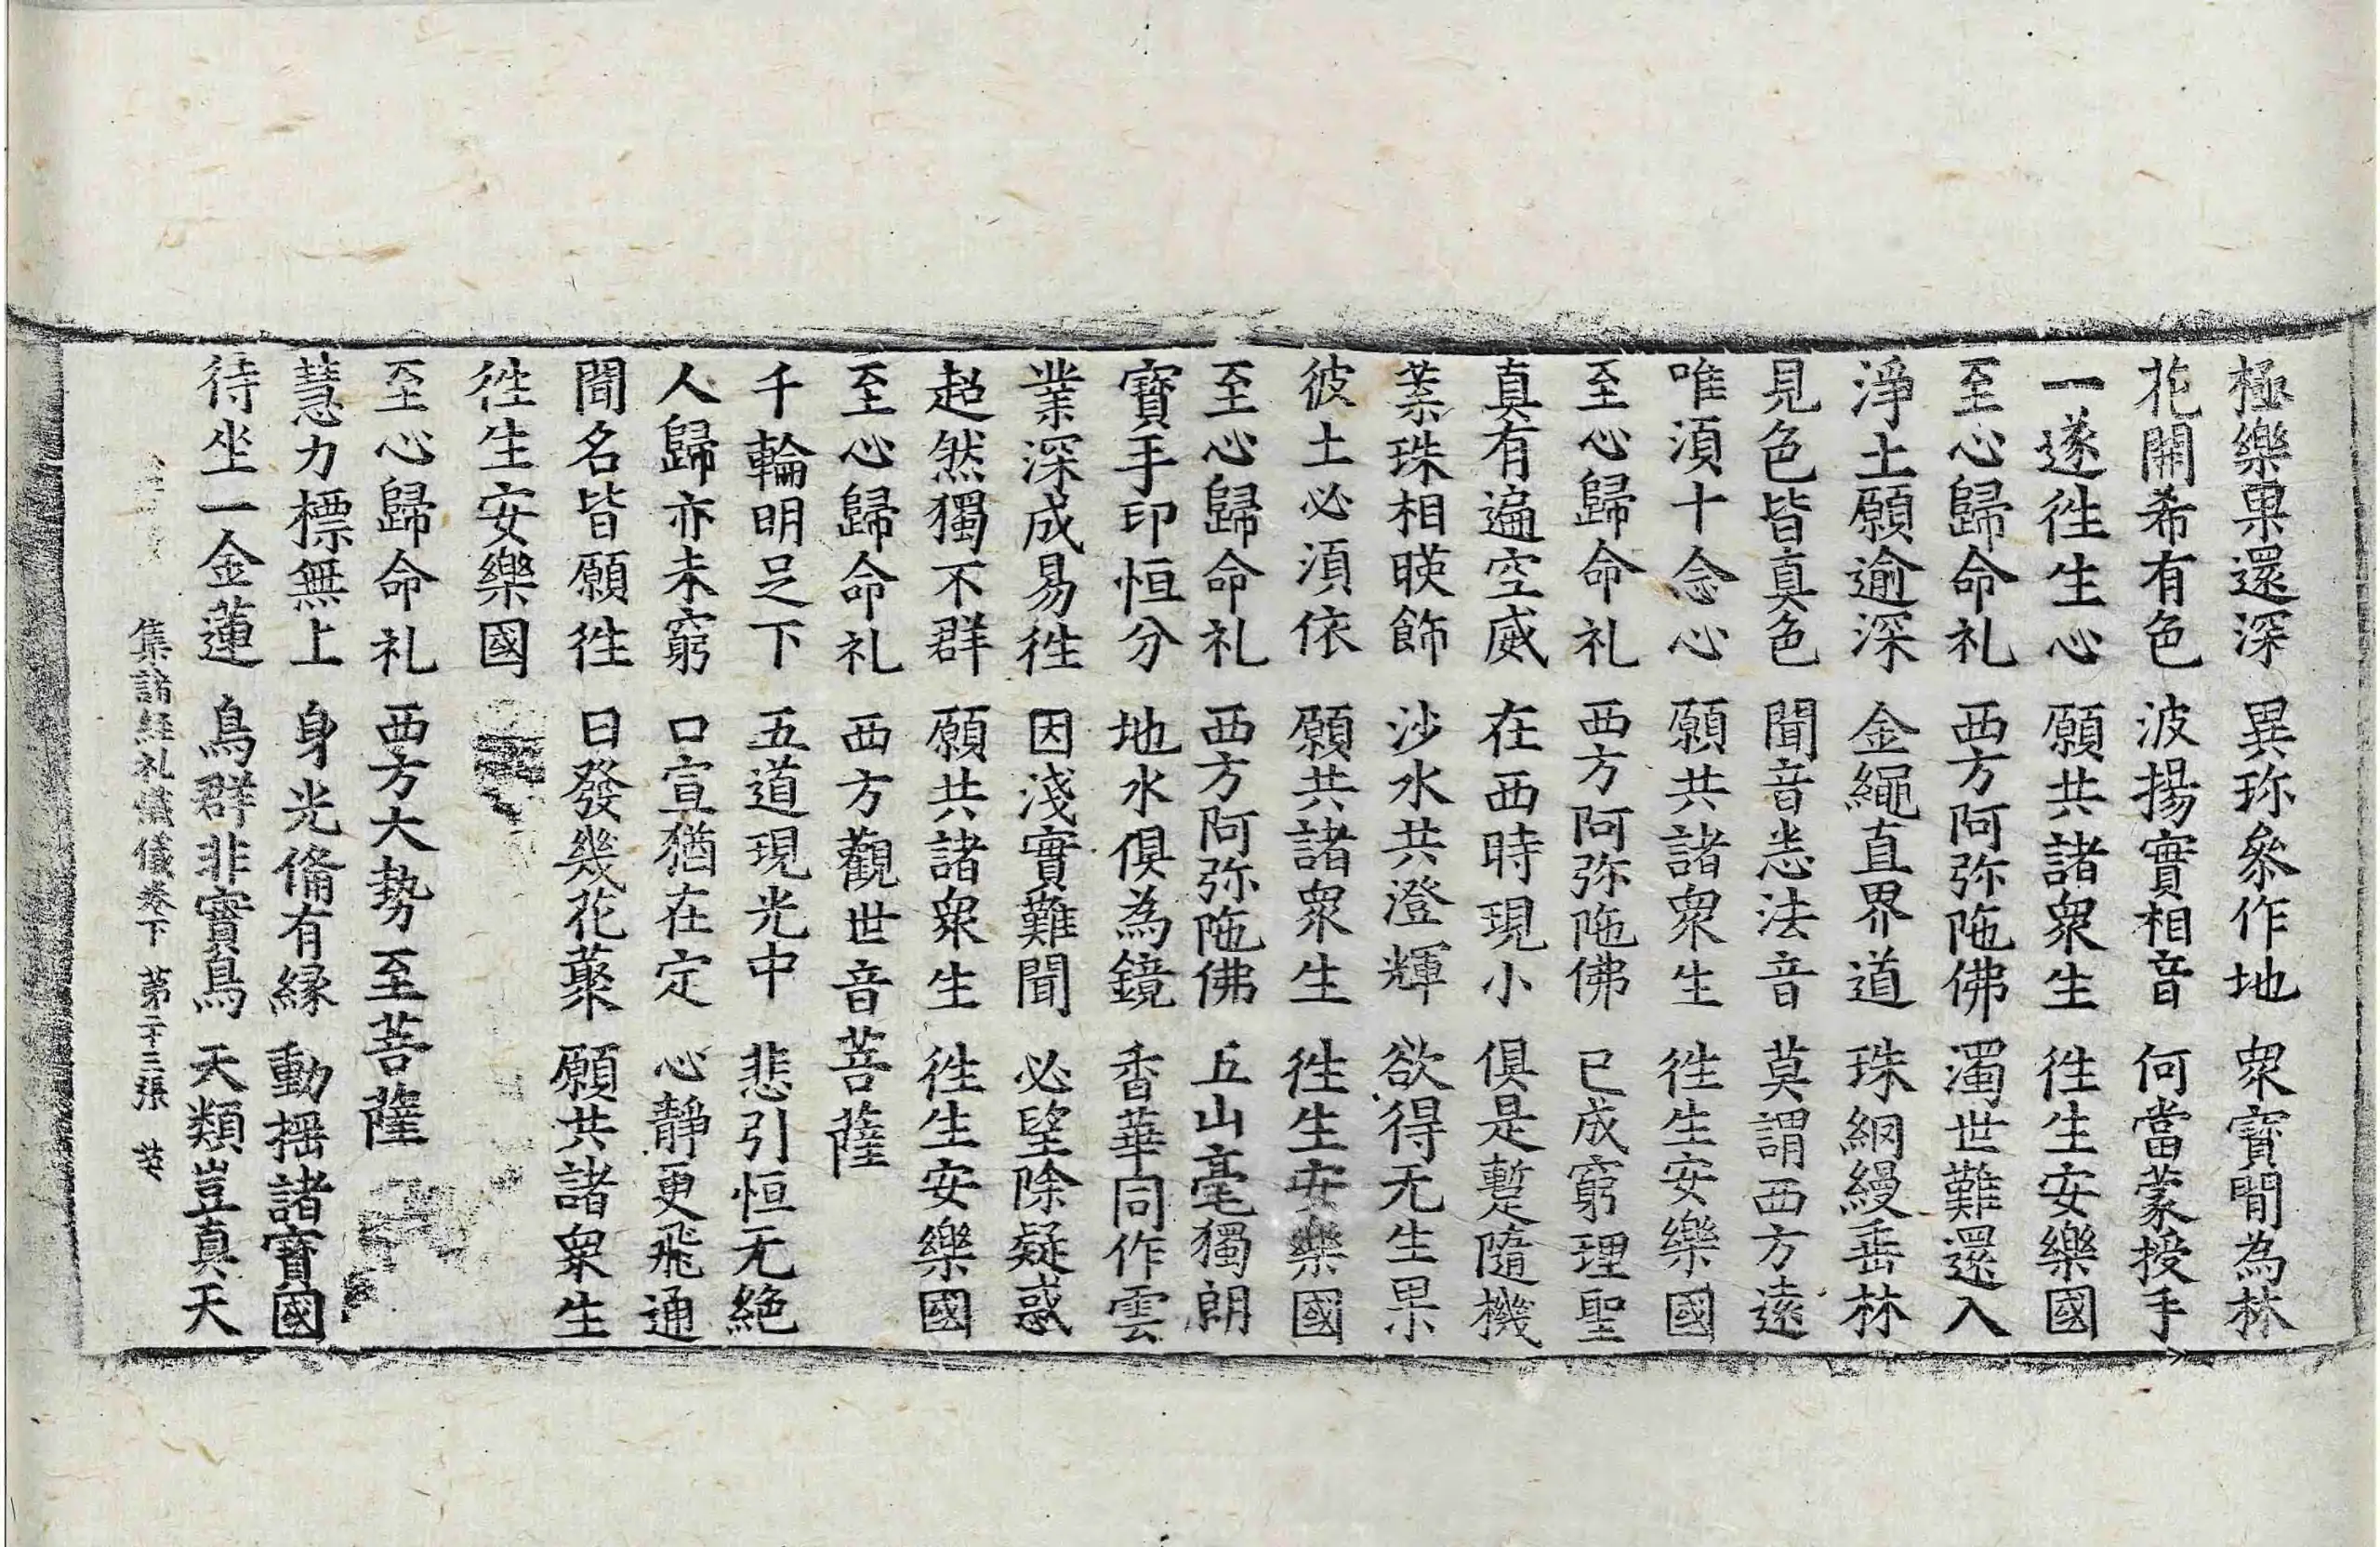 極樂果還深 異珎叅作地 眾寶間為林
花開希有色 波揚實相音 何當蒙授手
一遂徃生心 願共諸眾生 徃生安樂國
至心歸命礼 西方阿弥陁佛 濁世難還入
淨土願逾深 金繩直界道 珠網縵垂林
見色皆真色 聞音悉法音 莫謂西方遠
唯須十念心 願共諸眾生 徃生安樂國
至心歸命礼 西方阿弥陁佛 已成窮理聖
真有遍空威 在西時現小 俱是蹔隨機
葉珠相暎飾 沙水共澄輝 欲得无生果
彼土必須依 願共諸眾生 徃生安樂國
至心歸命礼 西方阿弥陁佛 五山毫獨朗
寶手印恒分 地水俱為鏡 香華同作雲
業深成易徃 因淺實難聞 必望除疑惑
超然獨不群 願共諸眾生 徃生安樂國
至心歸命礼 西方觀世音菩薩
千輪明足下 五道現光中 悲引恒无絕
人歸亦未窮 口宣猶在定 心靜更飛通
聞名皆願徃 日發幾花藂 願共諸眾生
徃生安樂國
至心歸命礼 西方大勢至菩薩
慧力標無上 身光備有縁 動搖諸寶國
待坐一金蓮 鳥群非實鳥 天類豈真天
集諸經礼懺儀卷下 第二十三張 英